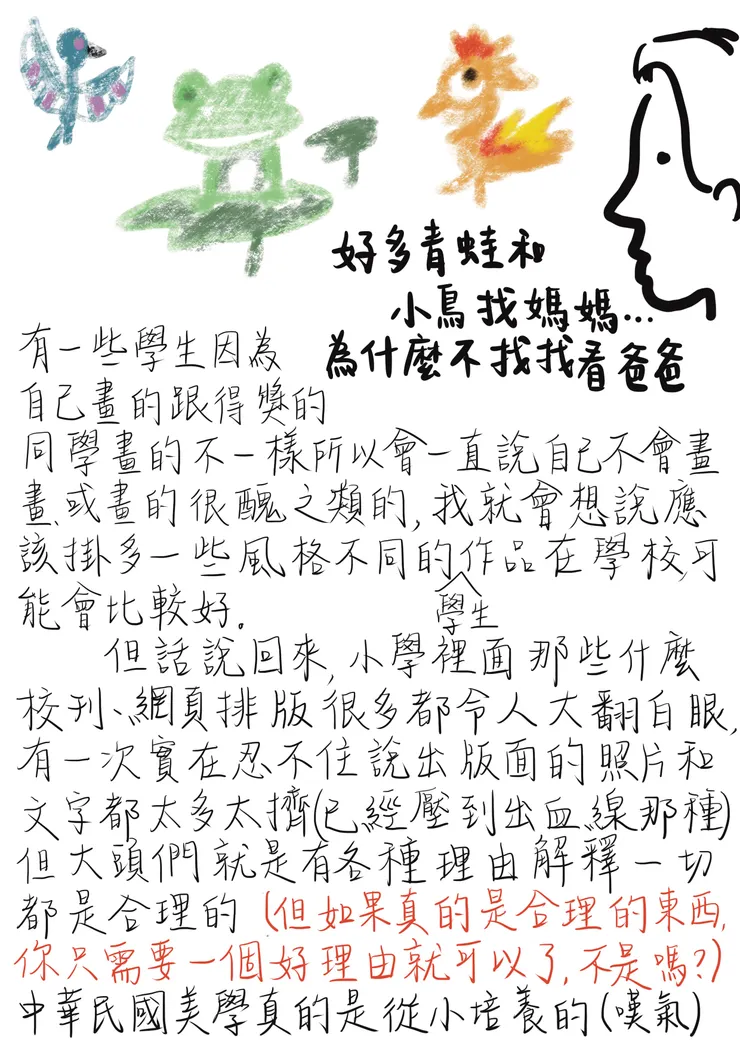 好多青蛙和
小鳥找媽媽...
為什麼不找找看爸爸
有一些學生因為
自己畫的跟得獎的
同學畫的不一樣所以會一直說自己不會畫
畫,或畫的很醜之類的,我就會想說應
該掛多一些風格不同的學生作品在學校,可
能會比較好。
但話說回來,小學裡面那些什麼
校刊、網頁排版很多都令人大翻白眼,
有一次實在忍不住說出版面的照片和
文字都太多太擠(已經壓到出血線那種)
但大頭們就是有各種理由解釋一切
都是合理的(但如果真的是合理的東西,
你只需要一個好理由就可以了,不是嗎?)
中華民國美學真的是從小培養的(嘆氣)